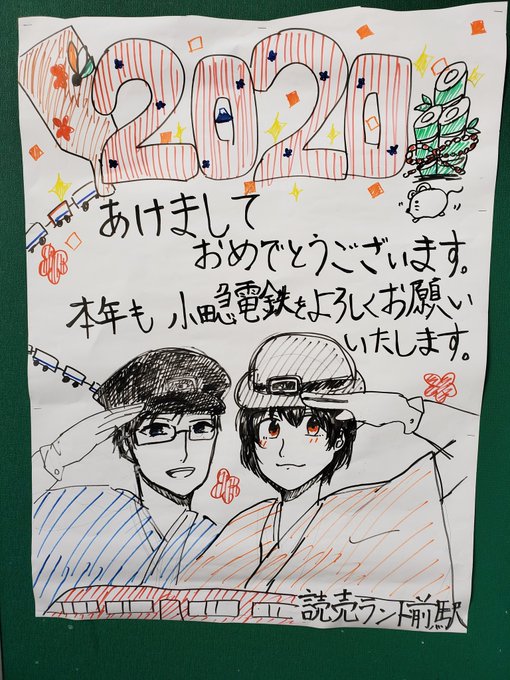 2020
あけまして
おめでとうございます。
本年も 小田急電鉄をよろしくお願い
いたします。
読売ランド前駅